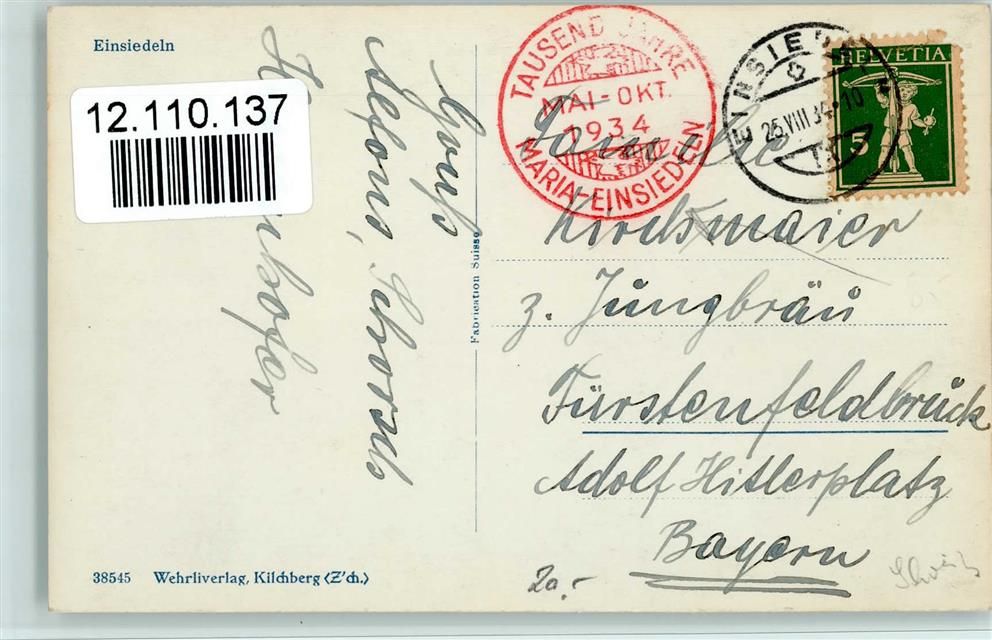 Einsiedeln
12.110.137
TAUSEND JAHRE
MAI-OKT.
1934
MARIA-EINSIEDELN
EINSIEDELN
25.VIII.34
HELVETIA
5
Familie
Kirchmaier
z. Jungbräu
Fürstenfeldbrück
Adolf Hitlerplatz
Bayern
Fabrication Suisse
38545 Wehrliverlag, Kilchberg (Z'ch.)
20,-
Schweiz